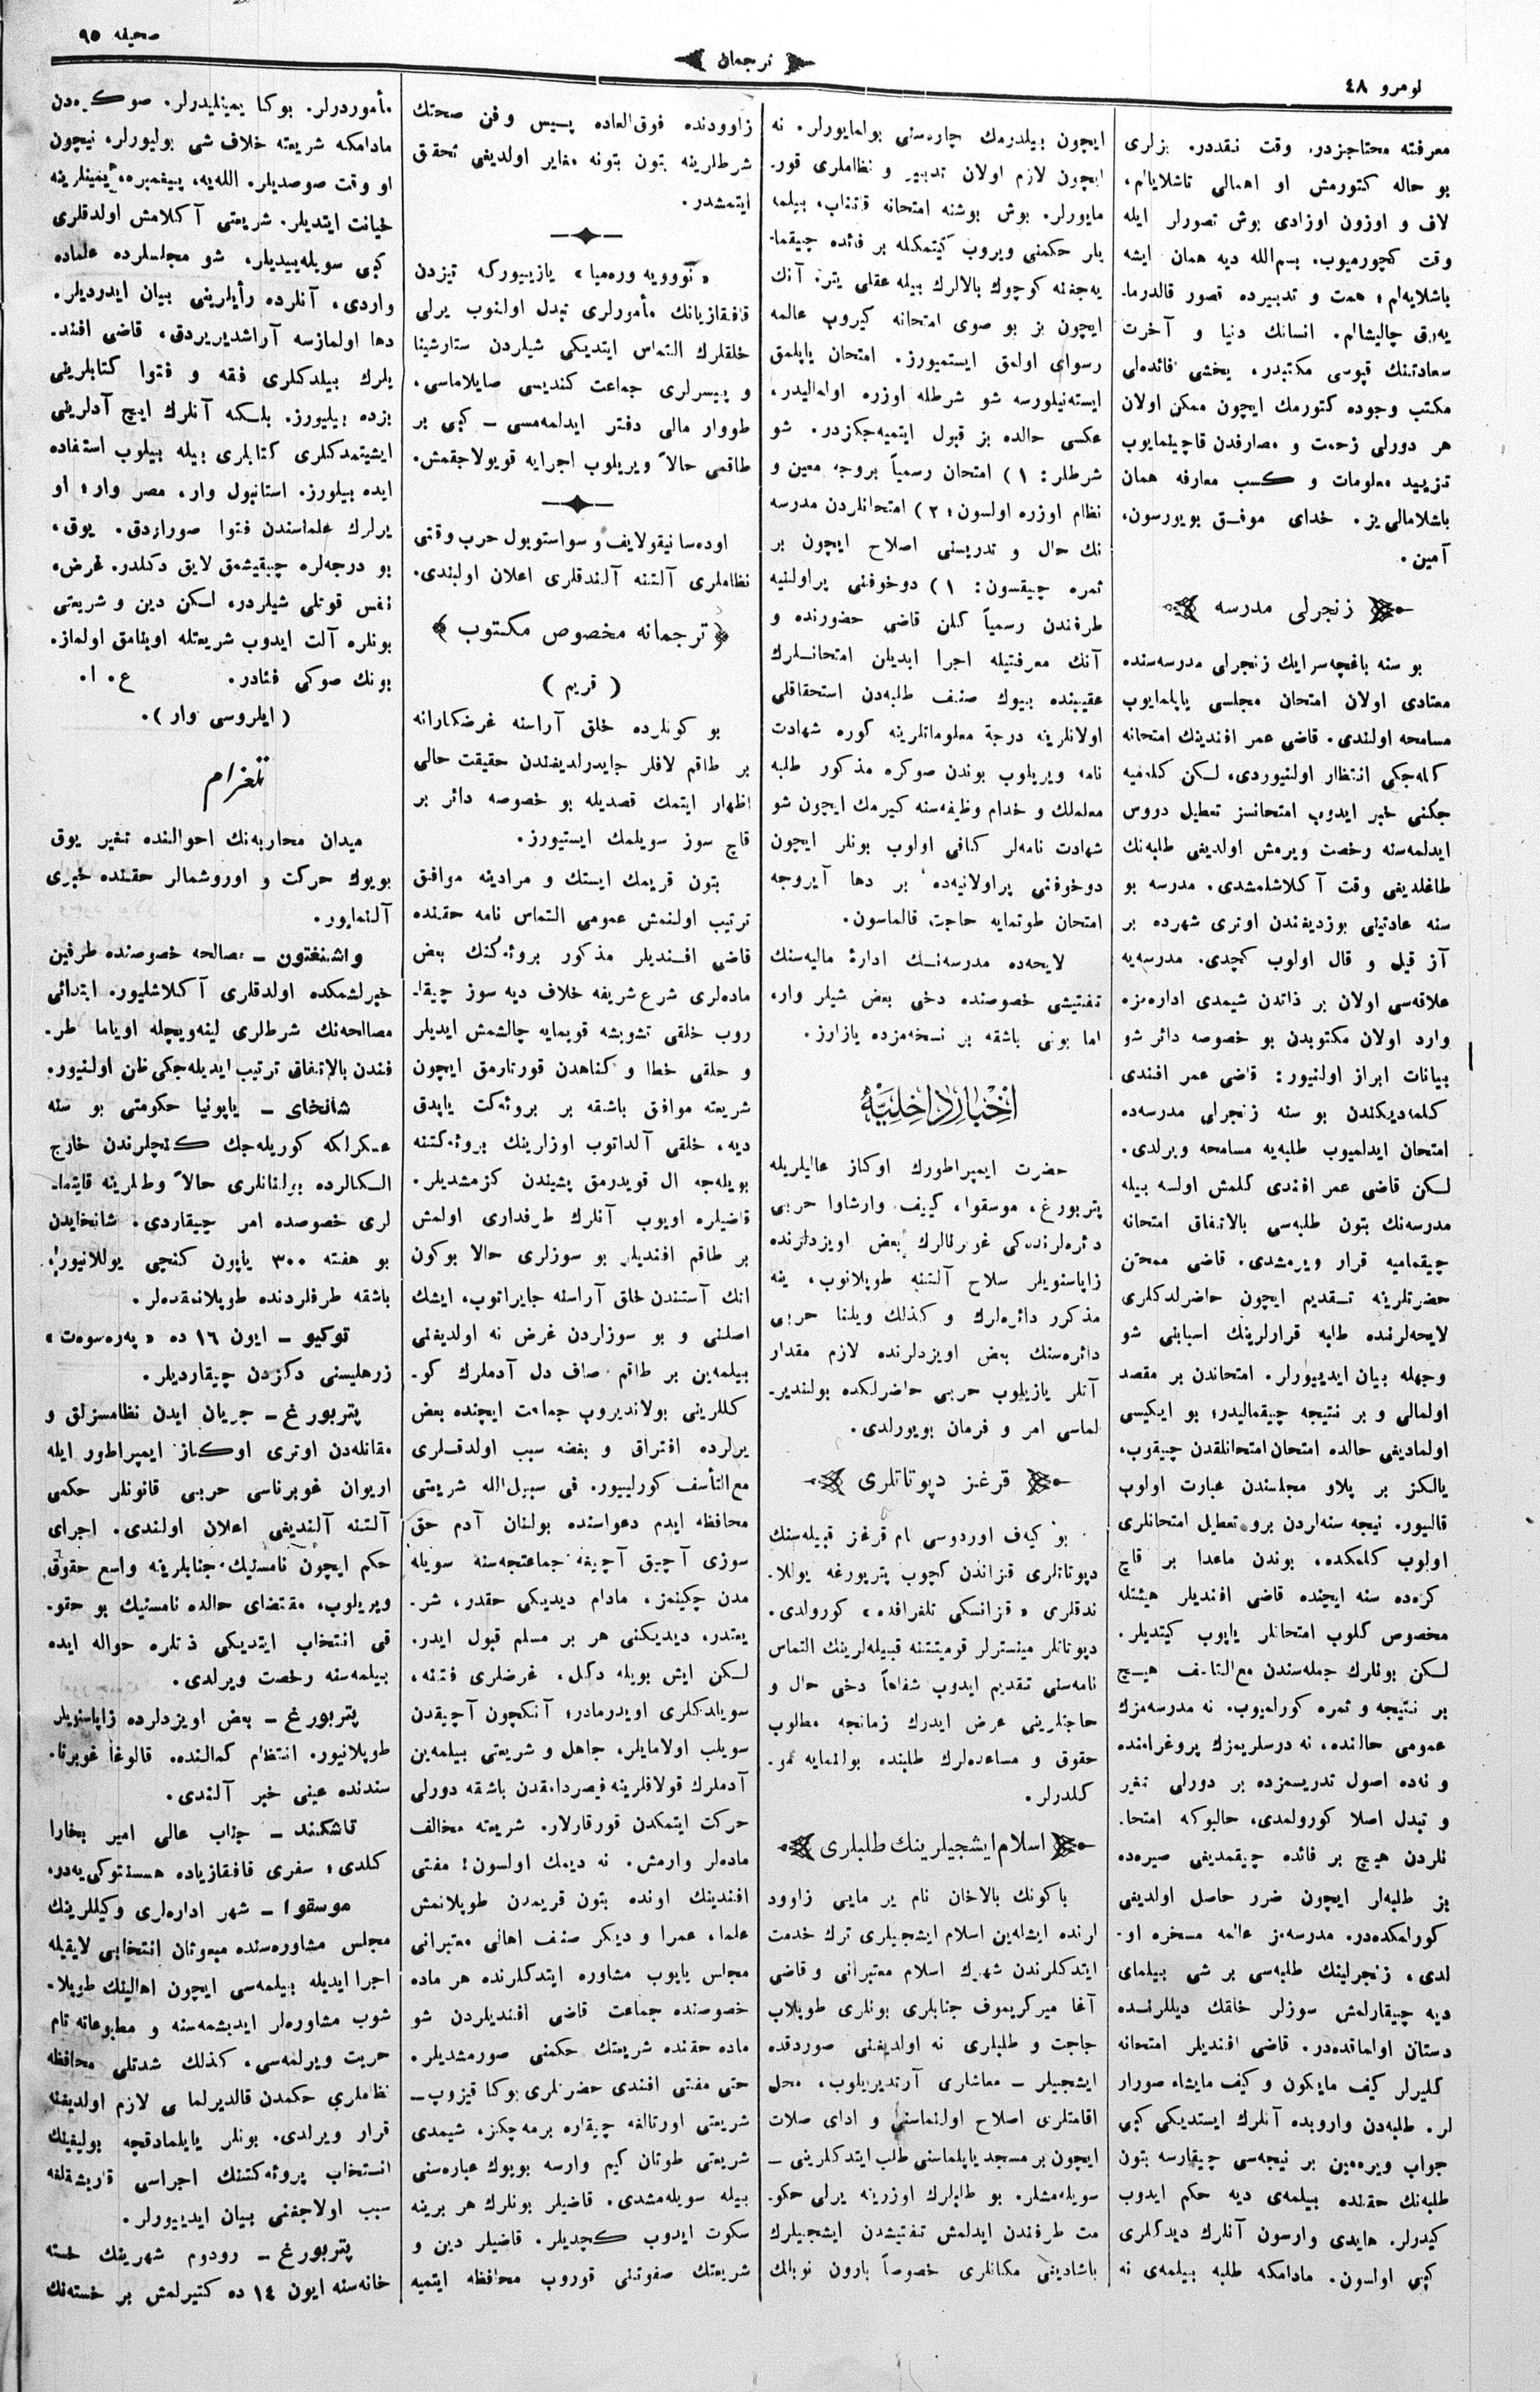 نومرو ٤٨
ترجمان
صحیفه ٩٥
معرفته محتاجزدر. وقت نقددر. بزلری
بو حاله كتورمش او اهمالی تاشلایالم،
لاف و اوزون اوزادی بوش تصورلر ایله
وقت كچورمیوب. بسم‌الله دیه همان ایشه
باشلایه‌لم؛ همت و تدبیرده قصور قالدرما-
یه‌رق چالیشالم. انسانك دنیا و آخرت
سعادتینك قپوسی مكتبدر، یخشی فائده‌لی
مكتب وجوده كتورمك ایچون ممكن اولان
هر دورلی زحمت و مصارفدن قاچینمایوب
تزیید معلومات و كسب معارفه همان
باشلامالی‌یز. خدای موفق بویورسون،
آمین.
زنجرلی مدرسه
بو سنه باغچه‌سرایك زنجرلی مدرسه‌سنده
معتادی اولان امتحان مجلسی یاپلمایوب
مسامحه اولندی. قاضی عمر افندینك امتحانه
كله‌جكی انتظار اولنیوردی، لكن كله‌میه
جكنی خبر ایدوب امتحانسز تعطیل دروس
ایدلمه‌سنه رخصت ویرمش اولدیغی طلبه‌نك
طاغلدیغی وقت آكلاشلمشدی. مدرسه بو
سنه عادتینی بوزدیغندن اوتری شهرده بر
آز قیل و قال اولوب كچدی. مدرسه‌یه
علاقه‌سی اولان بر ذاتدن شیمدی اداره‌مزه
وارد اولان مكتوبدن بو خصوصه دائر شو
بیانات ابراز اولنیور: قاضی عمر افندی
كلمه‌دیكندن بو سنه زنجرلی مدرسه‌ده
امتحان ایدلمیوب طلبه‌یه مسامحه ویرلدی.
لكن قاضی عمر افندی كلمش اولسه بیله
مدرسه‌نك بتون طلبه‌سی بالاتفاق امتحانه
چیقمامیه قرار ویرمشدی. قاضی ممتحن
حضرتلرینه تقدیم ایچون حاضرلدكلری
لایحه‌لرنده طلبه قرارلرینك اسبابنی شو
وجهله بیان ایدییورلر. امتحاندن بر مقصد
اولمالی و بر نتیجه چیقمالیدر؛ بو ایكیسی
اولمادیغی حالده امتحان امتحانلقدن چیقوب،
یالكز بر پلاو مجلسندن عبارت اولوب
قالیور. نیجه سنه‌لردن برو تعطیل امتحانلری
اولوب كلمكده، بوندن ماعدا بر قاچ
كره‌ده سنه ایچنده قاضی افندیلر هیئتله
مخصوص كلوب امتحانلر یاپوب كیتدیلر.
لكن بونلرك جمله‌سندن مع‌التاسف هیچ
بر نتیجه و ثمره كورلمیوب. نه مدرسه‌مزك
عمومی حالنده، نه درسلریمزك پروغرامنده
و نه‌ده اصول تدریسمزده بر دورلی تغیر
و تبدل اصلا كورولمدی، حالبوكه امتحا-
نلردن هیچ بر فائده چیقمدیغی صیره‌ده
بز طلبه‌لر ایچون ضرر حاصل اولدیغی
كورلمكده‌در. مدرسه‌مز عالمه مسخره او-
لدی، زنجرلینك طلبه‌سی بر شی بیلمای
دیه چیقارلمش سوزلر خلقك دیللرنده
دستان اولماقده‌در. قاضی افندیلر امتحانه
كلیرلر كیف مایكون و كیف مایشاء صورار
لر. طلبه‌دن وارویده آنلرك ایستدیكی كبی
جواب ویره‌مین بر نیجه‌سی چیقارسه بتون
طلبه‌نك حقنده بیلمه‌ی دیه حكم ایدوب
كیدرلر. هایدی وارسون آنلرك دیدكلری
كبی اولسون. مادامكه طلبه بیلمه‌ی نه
ایچون بیلدرمك چاره‌سنی بولمایورلر. نه
ایچون لازم اولان تدبیر و نظاملری قور-
مایورلر. بوش بوشنه امتحانه قتناب، بیلمه
یلر حكمنی ویروب كیتمكله بر فائده چیقما-
یه‌جغنه كوچوك بالالرك بیله عقلی یتر. آنك
ایچون بز بو صوی امتحانه كیروب عالمه
رسوای اولمق ایستمیورز. امتحان یاپلمق
ایسته‌نیلورسه شو شرطله اوزره اولمالیدر،
عكسی حالده بز قبول ایتمیه‌جكزدر. شو
شرطلر: ١) امتحان رسمیاً بروجه معین و
نظام اوزره اولسون؛ ٢) امتحانلردن مدرسه
نك حال و تدریسنی اصلاح ایچون بر
ثمره چیقسون: ١) دوخوفنی پراولنیه
طرفندن رسمیاً كلن قاضی حضورنده و
آنك معرفتیله اجرا ایدیلن امتحانلرك
عقیبنده بیوك صنف طلبه‌دن استحقاقلی
اولانلرینه درجهٔ معلوماتلرینه كوره شهادت
نامه ویریلوب بوندن صوكره مذكور طلبه
معلملك و خدام وظیفه‌سنه كیرمك ایچون شو
شهادت نامه‌لر كافی اولوب بونلر ایچون
دوخوفنی پراولانیه‌ده بر دها آیروجه
امتحان طوتمایه حاجت قالماسون.
لایحه‌ده مدرسه‌نك ادارهٔ مالیه‌سنك
تفتیشی خصوصنده دخی بعض شیلر وار،
اما بونی باشقه بر نسخه‌مزده یازارز.
اخبار داخلیّه
حضرت ایمپراطورك اوكاز عالیلریله
پتربورغ، موسقوا، كییف وارشاوا حربی
دائره‌لرنده‌كی غوبرنالرك بعض اویزدلرنده
زاپاسنویلر سلاح آلتنه طوپلانوب، ینه
مذكور دائره‌لرك و كذلك ویلنا حربی
دائره‌سنك بعض اویزدلرنده لازم مقدار
آتلر یازیلوب حربی حاضرلكده بولندیر-
لماسی امر و فرمان بویورلدی.
قرغز دپوتاتلری
بو كیه‌ف اوردوسی نام قرغز قبیله‌سنك
دپوتاتلری قزاندن كچوب پتربورغه یوللا-
ندقلری «قزانسكی تلغرافده» كورولدی.
دپوتاتلر مینسترلر قومیتتنه قبیله‌لرینك التماس
نامه‌سنی تقدیم ایدوب شفاهاً دخی حال و
حاجتلرینی عرض ایدرك زمانجه مطلوب
حقوق و مساعده‌لرك طلبنده بوالنمایه مو-
كلدرلر.
اسلام ایشجیلرینك طلبلری
باكونك بالاخان نام یر مایی زاوود
لرنده ایشله‌ین اسلام ایشجیلری ترك خدمت
ایتدكلرندن شهرك اسلام معتبرانی و قاضی
آغا میركریموف جنابلری بونلری طوپلاب
حاجت و طلبلری نه اولدیغنی صوردقده
ایشجیلر — معاشلری آرتدیریلوب، محل
اقامتلری اصلاح اولنماسنی و ادای صلات
ایچون بر مسجد یاپلماسنی طلب ایتدكلرینی —
سویلمشلر. بو طلبلرك اوزرینه یرلی حكو-
مت طرفندن ایدلمش تفتیشدن ایشجیلرك
یاشادیغی مكانلری خصوصاً بارون نوبلك
زاوودنده فوق‌العاده پسیس و فن صحتك
شرطلرینه بتون بتونه مغایر اولدیغی تحقق
ایتمشدر.
«نووویه وره‌میا» یازییوركه تیزدن
قافقازیانك مأمورلری تبدل اولنوب یرلی
خلقلرك التماس ایتدیكی شیلردن ستارشینا
و پیسرلری جماعت كندیسی صایلاماسی،
طووار مالی دفتر ایدلمه‌مسی — كبی بر
طاقمی حالاً ویریلوب اجرایه قویولاجقمش.
اوده‌سا نیقولایف و سواستوپول حرب وقتی
نظاملری آلتنه آلندقلری اعلان اولندی.
ترجمانه مخصوص مكتوب
(قریم)
بو كونلرده خلق آراسنه غرضكارانه
بر طاقم لافلر جایدرلدیغندن حقیقت حالی
اظهار ایتمك قصدیله بو خصوصه دائر بر
قاچ سوز سویلمك ایستیورز.
بتون قریمك ایستك و مرادینه موافق
ترتیب اولنمش عمومی التماس نامه حقنده
قاضی افندیلر مذكور پروژه‌كنك بعض
ماده‌لری شرع شریفه خلاف دیه سوز چیقا-
روب خلقی تشویشه قویمایه چالشمش ایدیلر
و خلقی خطا و كناهدن قورتارمق ایچون
شریعته موافق باشقه بر پروژه‌كت یاپدق
دیه، خلقی آلداتوب اوزلرینك پروژه‌كتنه
بویله‌جه ال قویدرمق پشیندن كزمشدیلر.
قاضیلره اویوب آنلرك طرفداری اولمش
بر طاقم افندیلر بو سوزلری حالا بوكون
انك آستندن خلق آراسنه جایراتوب، ایشك
اصلنی و بو سوزلردن غرض نه اولدیغنی
بیلمه‌ین بر طاقم صاف دل آدملرك كو-
كللرینی بولاندیروپ جماعت ایچنده بعض
یرلرده افتراق و بغضه سبب اولدقلری
مع‌التأسف كورلییور. فی سبیل‌الله شریعتی
محافظه ایدم دعواسنده بولنان آدم حق
سوزی آچیق آچیقه جماعتجه‌سنه سویله
مدن چكینمز، مادام دیدیكی حقدر، شر-
یعتدر، دیدیكنی هر بر مسلم قبول ایدر.
لكن ایش بویله دكل. غرضلری فتنه،
سویلدكلری اویدرمادر؛ آنكچون آچیقدن
سویلب اولامایلر، جاهل و شریعتی بیلمه‌ین
آدملرك قولاقلرینه فیصردانقدن باشقه دورلی
حركت ایتمكدن قورقارلار. شریعته مخالف
ماده‌لر وارمش. نه دیمك اولسون! مفتی
افندینك اونده بتون قریمدن طوپلانمش
علماء، عمرا و دیكر صنف اهالی معتبرانی
مجلس یاپوب مشاوره ایتدكلرنده هر ماده
خصوصنده جماعت قاضی افندیلردن شو
ماده حقنده شریعتك حكمنی صورمشدیلر.
حتی مفتی افندی حضرتلری بوكا قیزوب —
شریعتی اورتالغه چیقاره برمه‌چكز، شیمدی
شریعتی طوتان كیم وارسه بویوك عباره‌سنی
بیله سویله‌مشدی. قاضیلر بونلرك هر برینه
سكوت ایدوب كچدیلر. قاضیلر دین و
شریعتك صفوتینی قوروب محافظه ایتمیه
مأموردرلر. بوكا یمینلیدرلر. صوكره‌دن
مادامكه شریعته خلاف شی بولیورلر، نیچون
او وقت صوصدیلر. اللهیه، پیغمبره، یمینلرینه
خیانت ایتدیلر. شریعتی آكلامش اولدقلری
كبی سویله‌ییدیلر، شو مجلسلرده علماده
واردی، آنلرده رأیلرینی بیان ایدردیلر.
دها اولمازسه آراشدیریردق، قاضی افند-
یلرك بیلدكلری فقه و فتوا كتابلرینی
بزده بیلیورز. بلكه آنلرك ایچ آدلرینی
ایشیتمدكلری كتابلری بیله بیلوب استفاده
ایده بیلورز. استانبول وار، مصر وار؛ او
یرلرك علماسندن فتوا صورازدق. یوق،
بو درجه‌لره چیقیشمق لایق دكلدر. غرض،
نفس قوتلی شیلردر، لكن دین و شریعتی
بونلره آلت ایدوب شریعتله اوینامق اولماز.
بونك صوكی فنادر. ع. ا.
(ایلروسی وار).
تلغرام
میدان محاربه‌نك احوالنده تغیر یوق
بویوك حركت و اوروشمالر حقنده خبری
آلنمایور.
واشنغتون — مصالحه خصوصنده طرفین
خبرلشمكده اولدقلری آكلاشلیور. ابتدائی
مصالحه‌نك شرطلری لینه‌ویچله اویاما طر-
فندن بالاتفاق ترتیب ایدیله‌جكی ظن اولنیور.
شانخای — یاپونیا حكومتی بو سنه
عسكرلكه كوریله‌جك كنجلرندن خارج
الكالرده بولنانلری حالاً وطنلرینه قایتما-
لری خصوصده امر چیقاردی. شانخایدن
بو هفته ٣٠٠ یاپون كنجی یوللانیور،
باشقه طرفلردنده طوپلانمقده‌لر.
توكیو — ایون ١٦ ده «په‌ره‌سوه‌ت»
زرهلیسنی دكزدن چیقاردیلر.
پتربورغ — جریان ایدن نظامسزلق و
مقاتله‌دن اوتری اوكاز ایمپراطور ایله
اریوان غوبرناسی حربی قانونلر حكمی
آلتنه آلندیغی اعلان اولندی. اجرای
حكم ایچون نامسنیك جنابلرینه واسع حقوق
ویریلوب، مقتضای حالده نامسنیك بو حقو-
قی انتخاب ایتدیكی ذاتلره حواله ایده
بیلمه‌سنه رخصت ویرلدی.
پتربورغ — بعض اویزدلرده زاپاسنویلر
طوپلانیور. انتظام كمالنده. قالوغا غوبرنا-
سندنده عینی خبر آلندی.
تاشكند — جناب عالی امیر بخارا
كلدی؛ سفری قافقازیاده هسسنتوكی‌یه‌در.
موسقوا — شهر اداره‌لری وكیللرینك
مجلس مشاوره‌سنده مبعوثان انتخابی لایقیله
اجرا ایدیله بیلمه‌سی ایچون اهالینك طوپلا-
شوب مشاوره‌لر ایدیشمه‌سنه و مطبوعاته تام
حریت ویرلمه‌سی، كذلك شدتلی محافظه
نظاملری حكمدن قالدیرلما ی لازم اولدیغنه
قرار ویرلدی. بونلر یاپلمادقچه بولیغینك
انتخاب پروژه‌كتنك اجراسی قاریشقلغه
سبب اولاجغنی بیان ایدییورلر.
پتربورغ — رودوم شهرینك خسته
خانه‌سنه ایون ١٤ ده كتیرلمش بر خسته‌نك